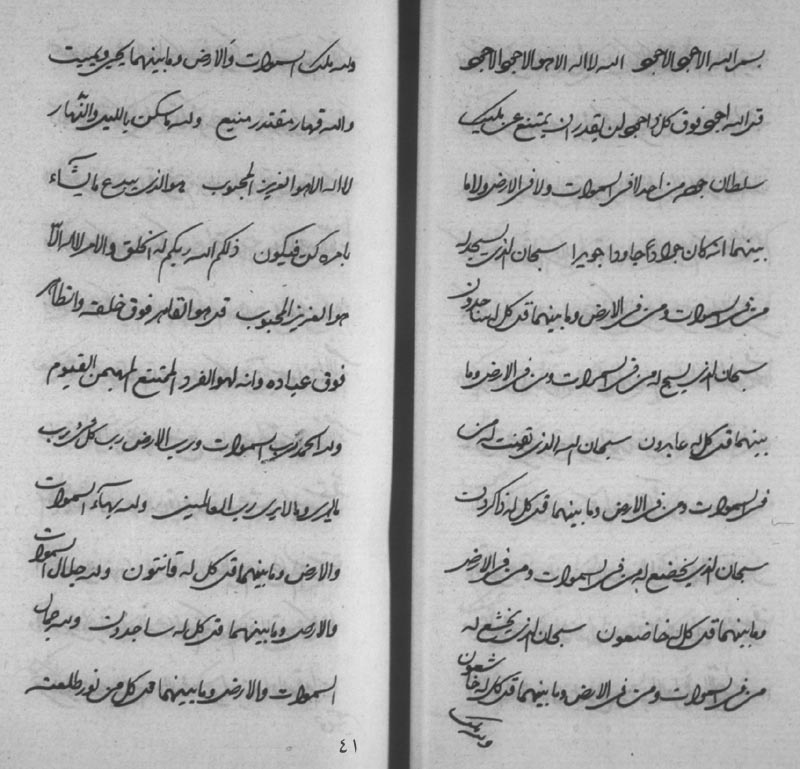 بسم الله الاجود الاجود الله لا اله الا هو الاجود الاجود
قل الله اجود فوق كل ذا جود لن يقدر ان يمتنع عن مليك
سلطان جوده من احد لا فى السموات ولا فى الارض ولا ما
بينهما انه كان جوادا جاودا جويدا سبحان الذى يسجد له
من فى السموات ومن فى الارض وما بينهما قل كل له ساجدون
سبحان الذى يسبح له من فى السموات ومن فى الارض وما
بينهما قل كل له عابدون سبحان الله الذى يقنت له من
فى السموات ومن فى الارض وما بينهما قل كل له ذاكرون
سبحان الذى يخضع له من فى السموات ومن فى الارض
وما بينهما قل كل له خاضعون سبحان الذى يخشع له
من فى السموات ومن فى الارض وما بينهما قل كل له خاشعون
ولله ملك
ولله ملك السموات والارض وما بينهما يحيى ويميت
والله قهار مقتدر منيع وله ما سكن بالليل والنهار
لا اله الا هو العزيز المحبوب هو الذى يبدع ما يشاء
بامره كن فيكون ذلكم الله ربكم له الخلق والامر لا اله الا
هو العزيز المحبوب قل هو القاهر فوق خلقه والظاهر
فوق عباده وانه لهو الفرد الممتنع المهيمن القيوم
ولله الحمد رب السموات ورب الارض رب كل شىء رب
ما يرى وما لا يرى رب العالمين ولله بهاء السموات
والارض وما بينهما قل كل له قانتون ولله جلال السموات
والارض وما بينهما قل كل له ساجدون ولله جمال
السموات والارض وما بينهما قل كل من نور طلعته
٤١